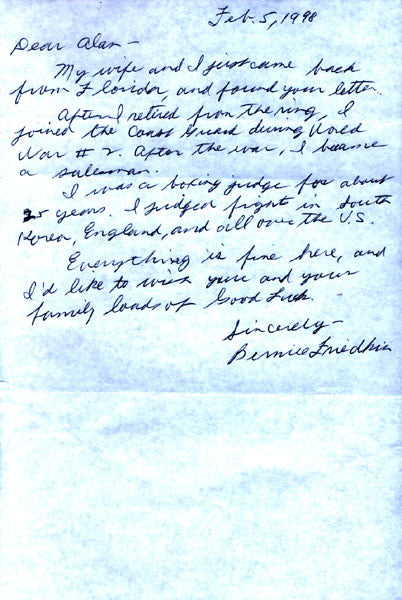 Feb. 5, 1998
Dear Alan -
My wife and I just came back
from Florida, and found your letter.
After I retired from the ring, I
joined the Coast Guard during World
War # 2. After the war, I became
a salesman.
I was a boxing judge for about
25 years. I judged fights in South
Korea, England, and all over the U.S.
Everything is fine here, and
I'd like to wish you and your
family loads of Good Luck.
Sincerely -
Bernie Friedkin